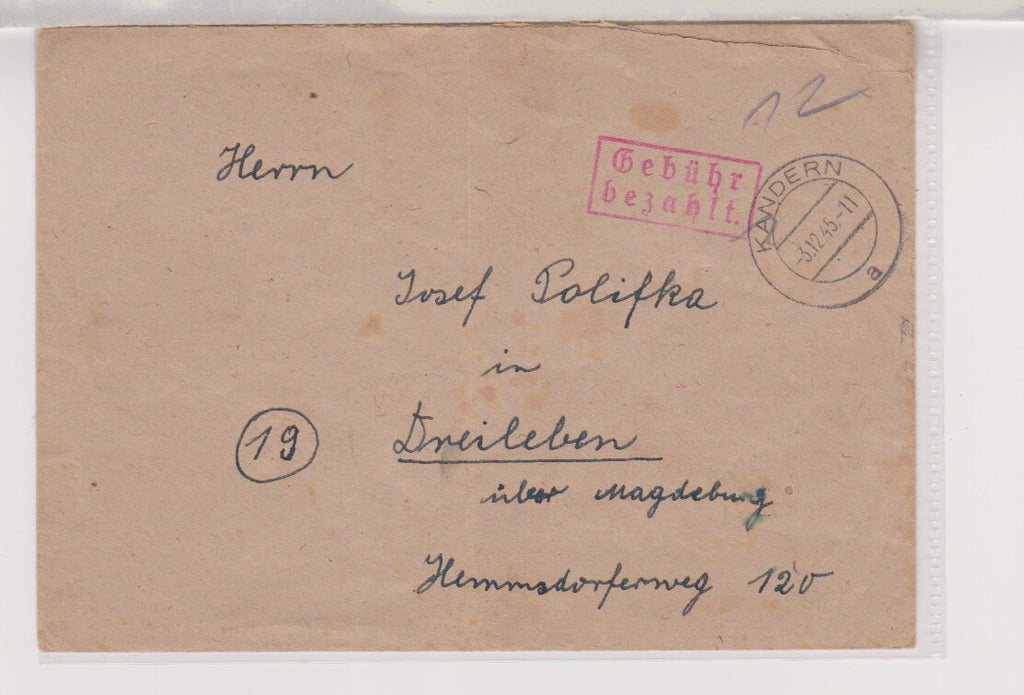 12
Gebühr
bezahlt.
KANDERN
-3.12.45.-11
a
Herrn
Josef Polifka
in
19
Dreileben
über Magdeburg
Hemmsdorferweg 120